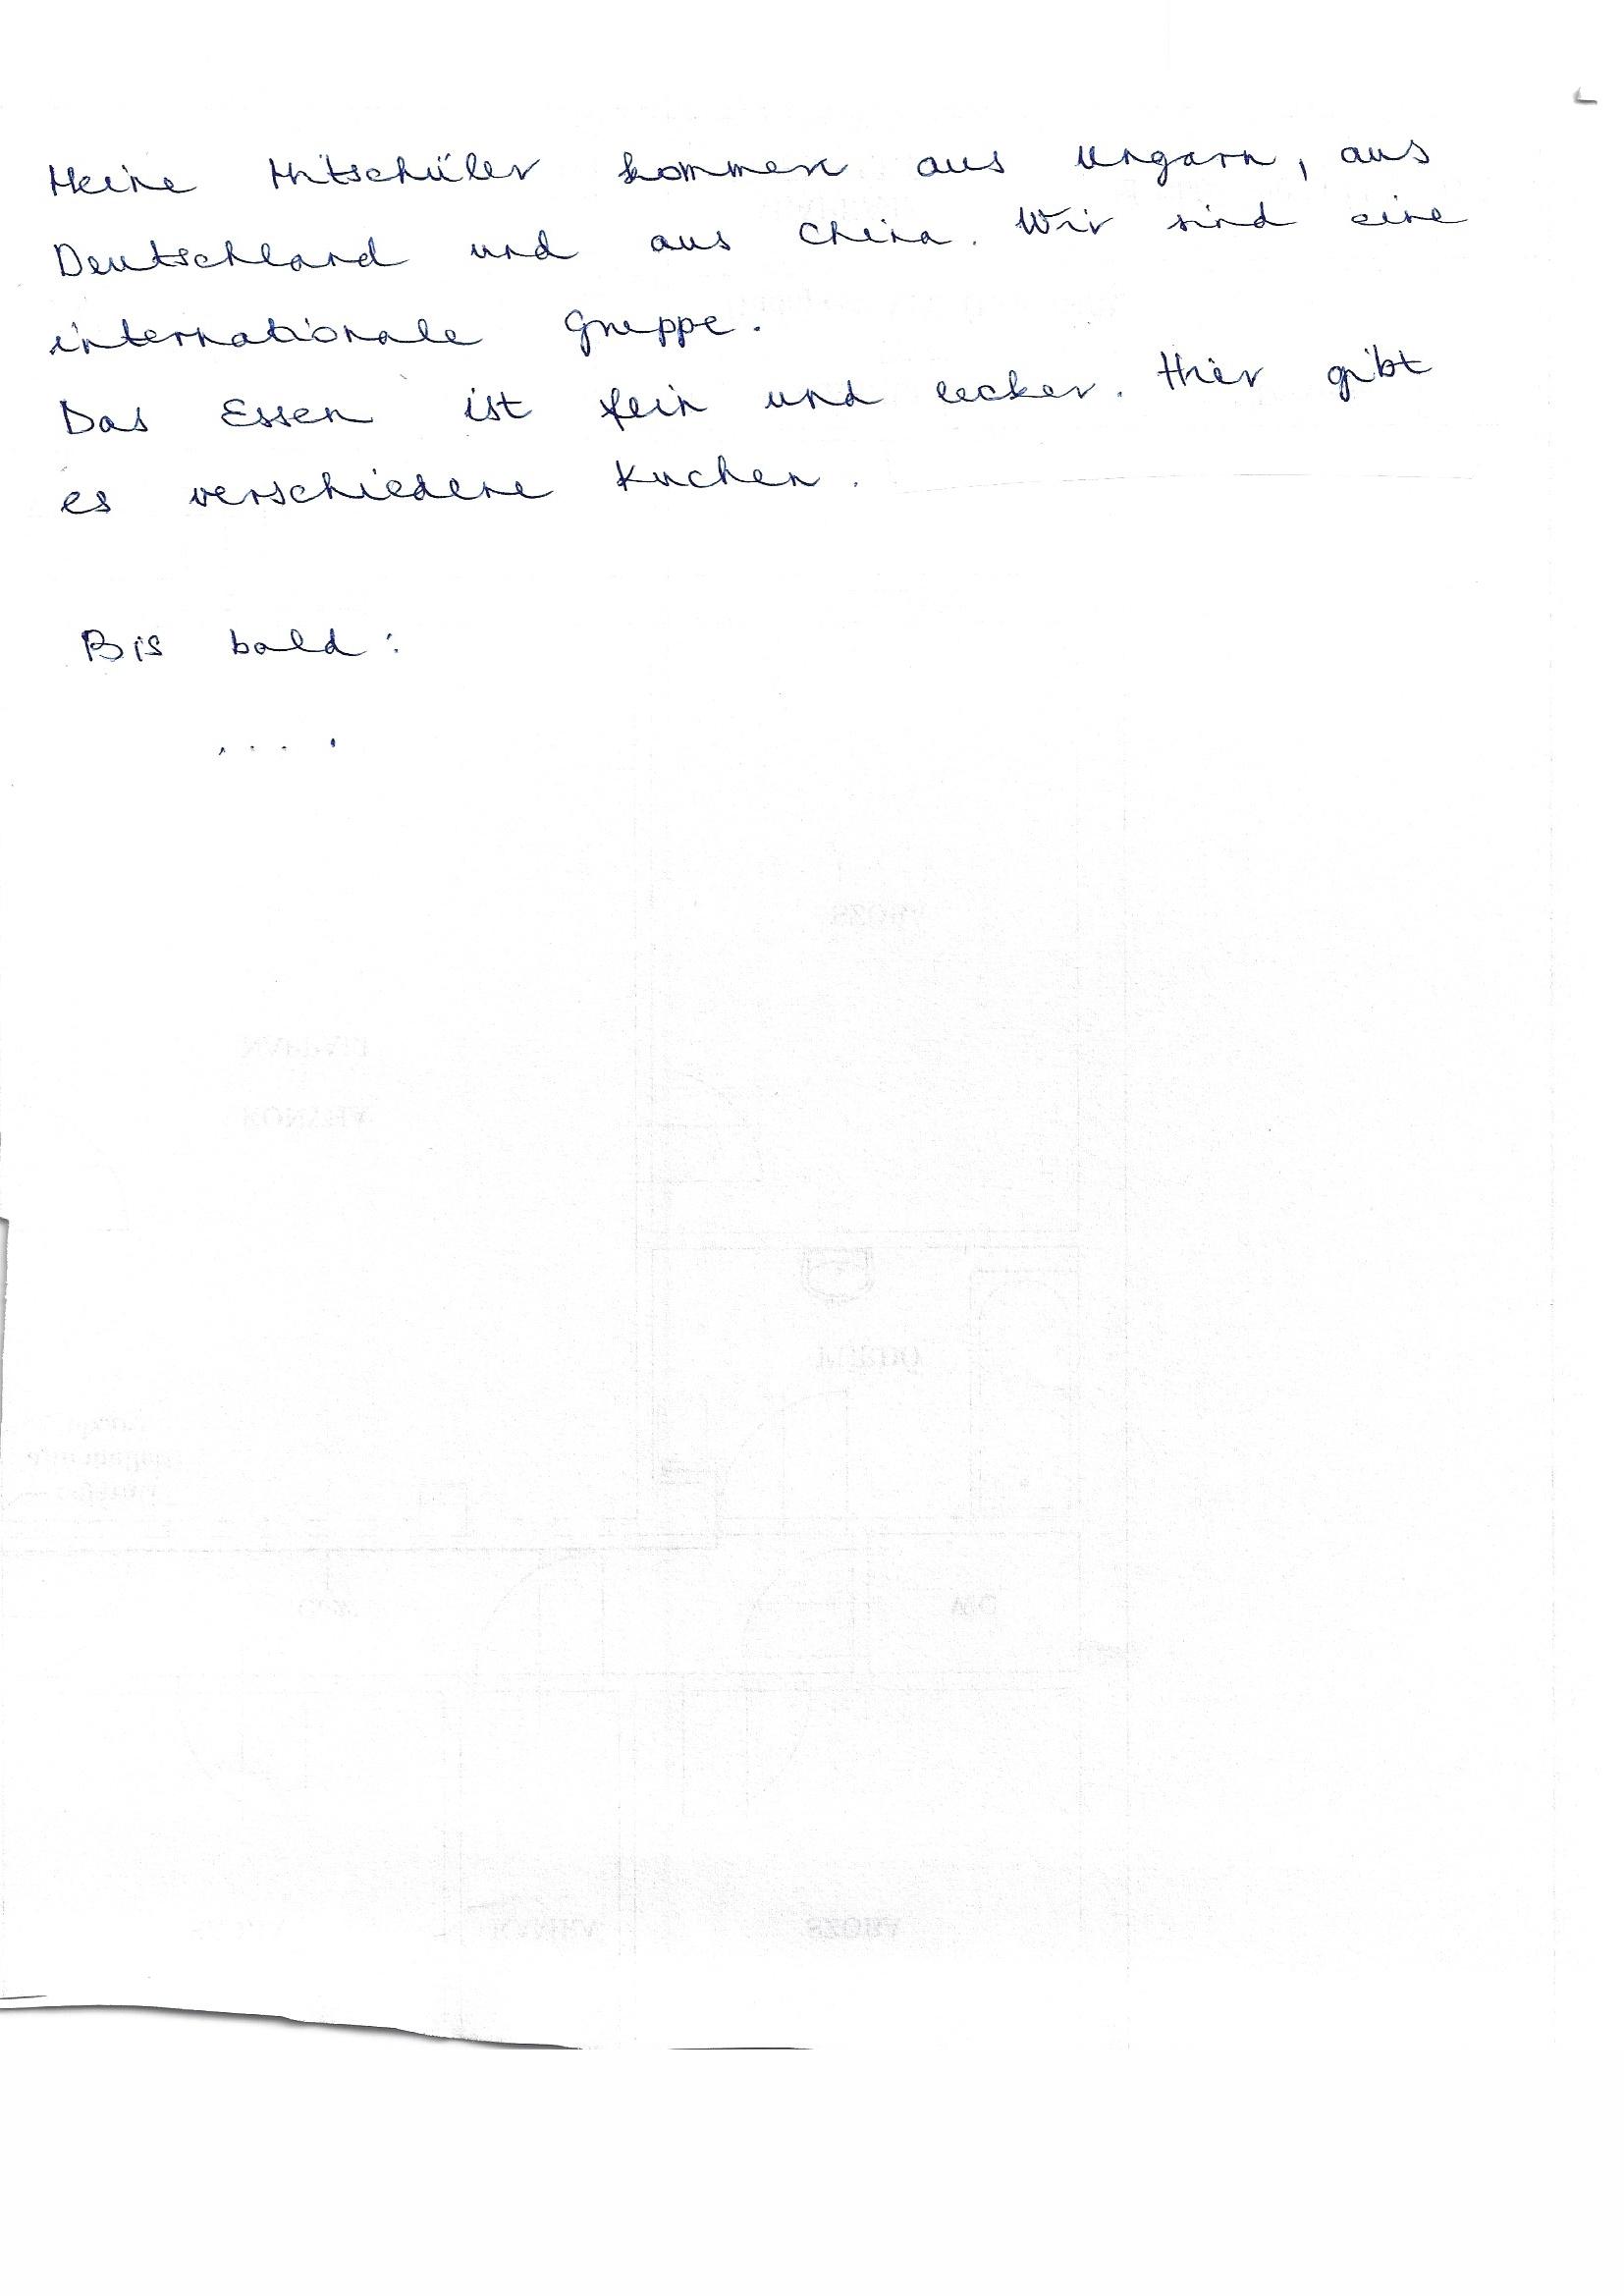 Meine Mitschüler kommen aus Ungarn, aus
Deutschland und aus China. Wir sind eine
internationale Gruppe.
Das Essen ist fein und lecker. Hier gibt
es verschiedene Kuchen.
Bis bald:
....